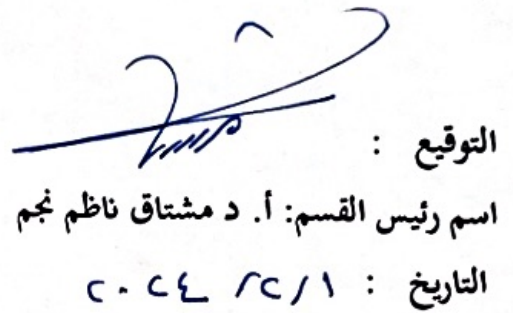 التوقيع :
اسم رئيس القسم: أ. د مشتاق ناظم نجم
التاريخ : ١ / ٢ / ٢٠٢٤